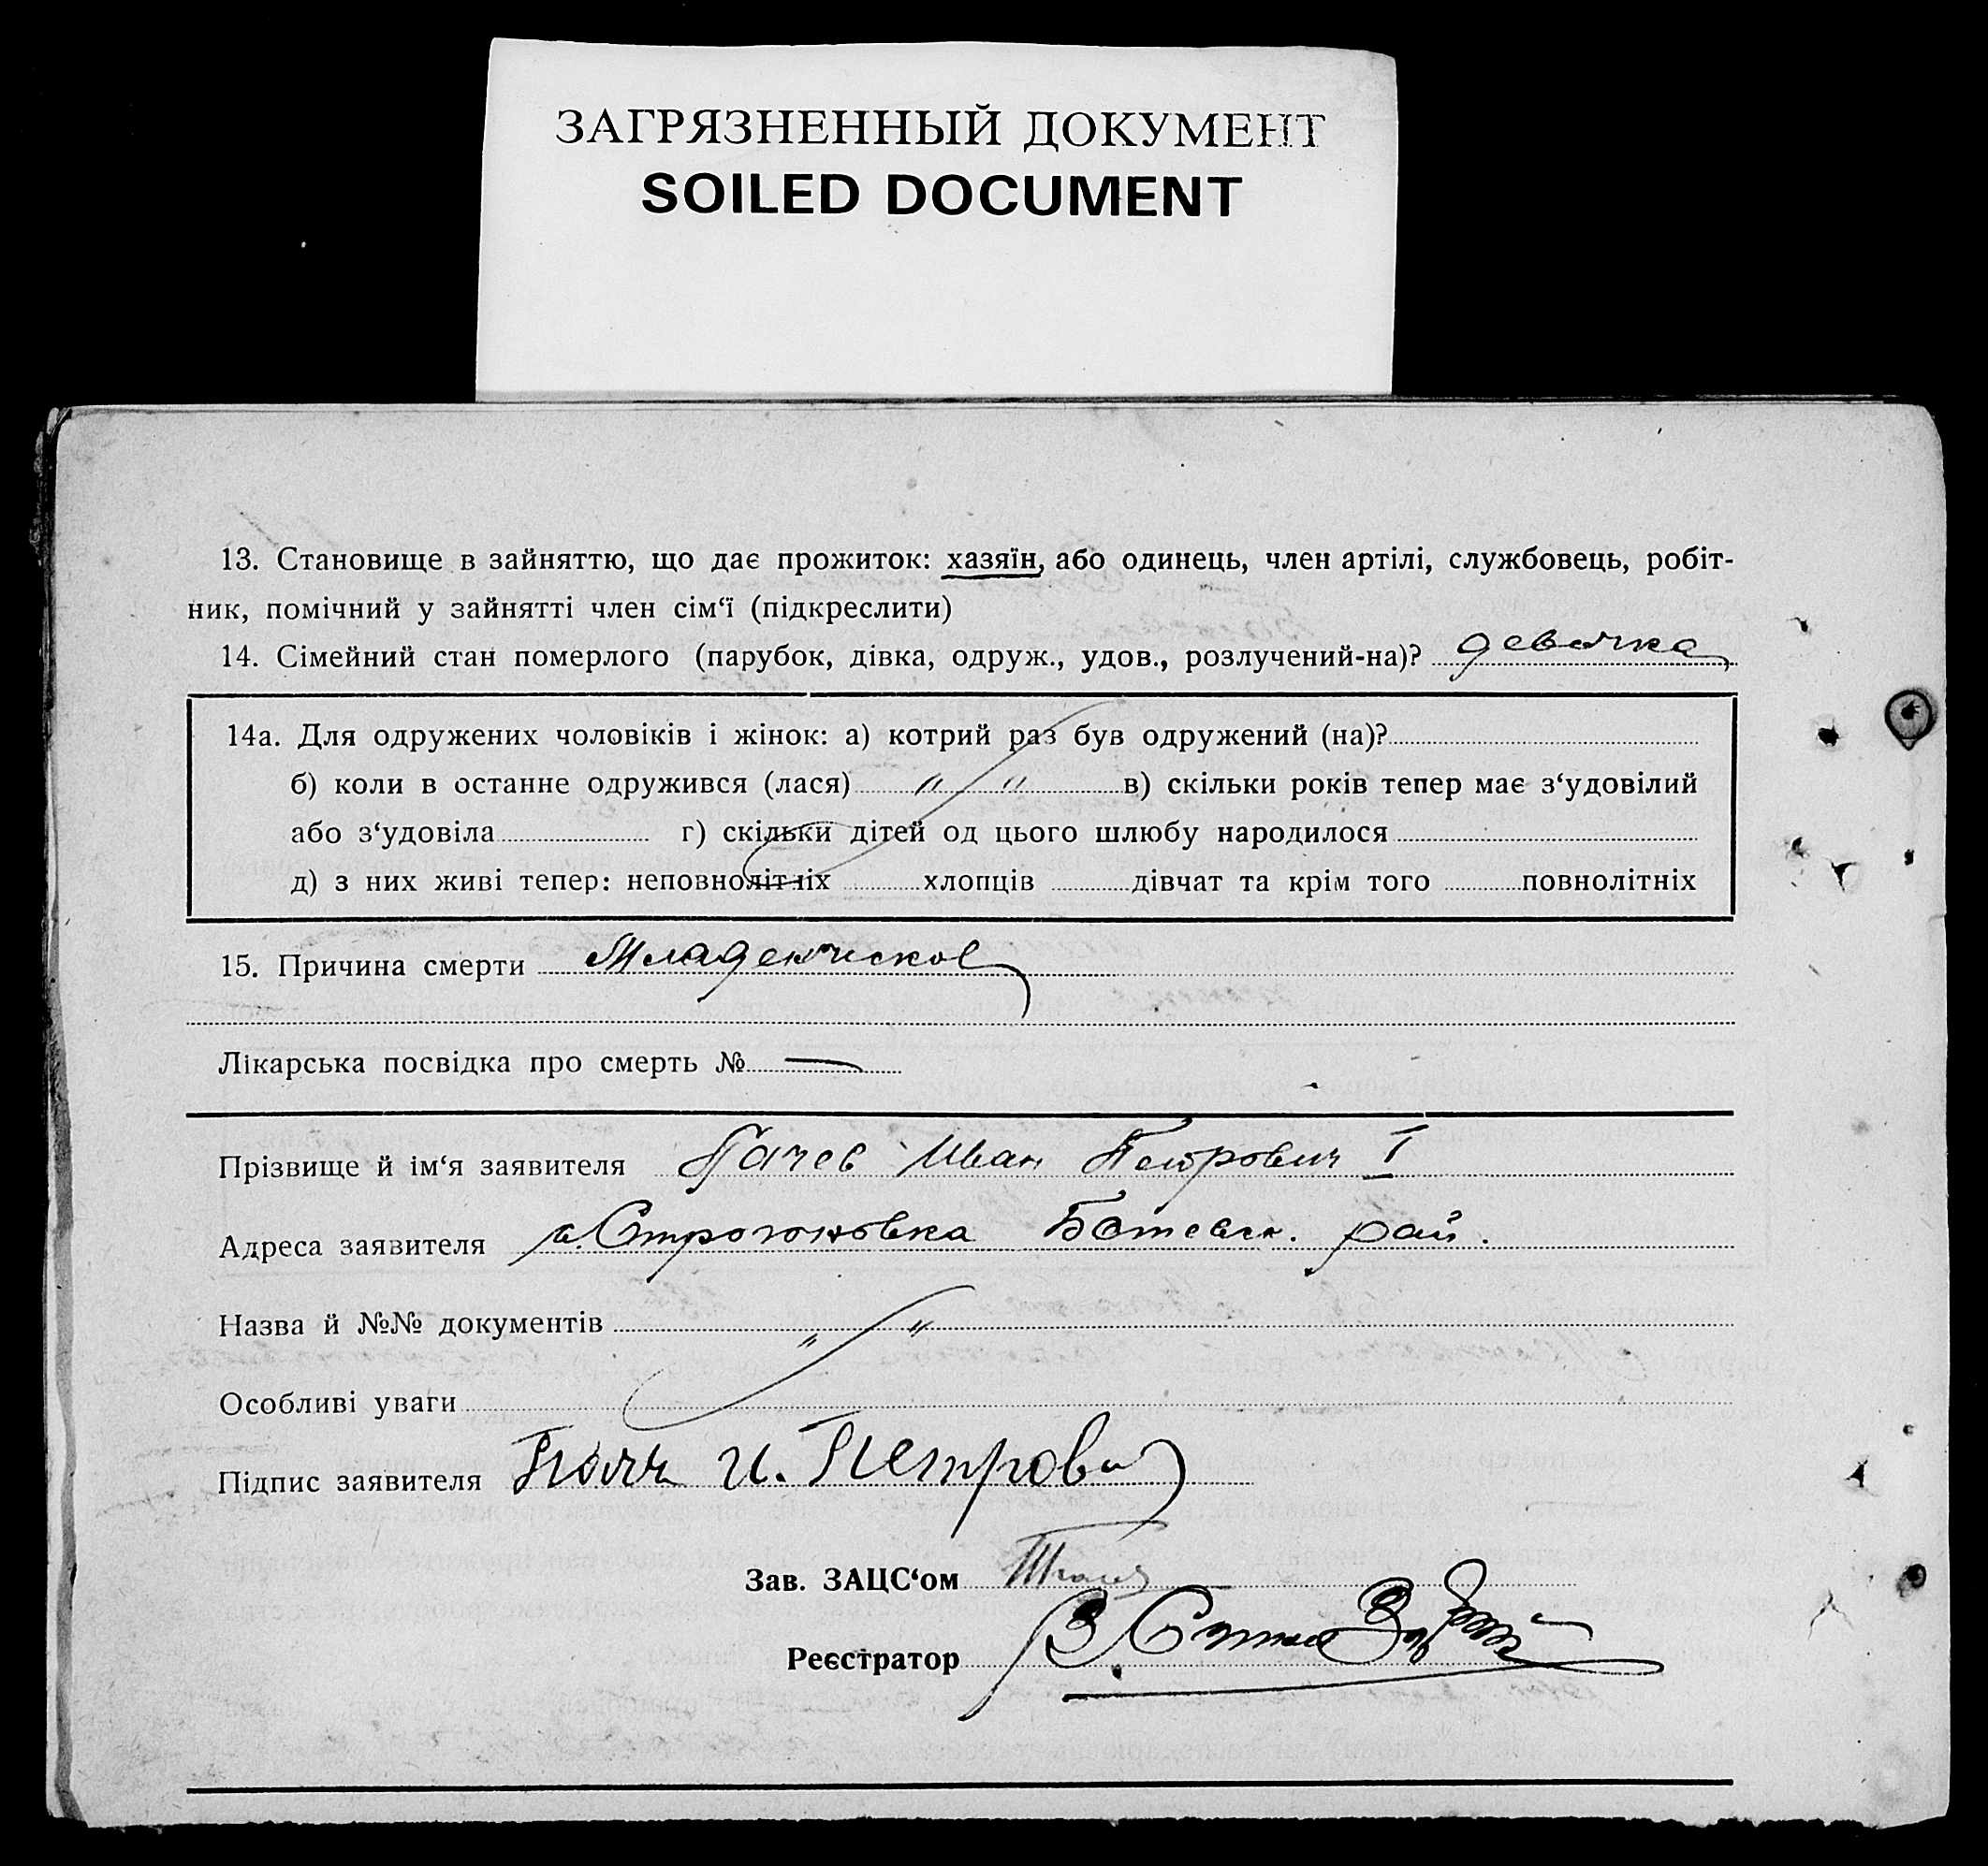 ЗАГРЯЗНЕННЫЙ ДОКУМЕНТ
SOILED DOCUMENT
13. Становище в зайняттю, що дає прожиток: хазяїн, або одинець, член артілі, службовець, робіт-
ник, помічний у зайнятті член сім‘ї (підкреслити)
14. Сімейний стан померлого (парубок, дівка, одруж., удов., розлучений-на)? девочка
14а. Для одружених чоловіків і жінок: а) котрий раз був одружений (на)?
б) коли в останне одружився (лася) " " в) скільки років тепер має з‘удовілий
або з‘удовіла г) скільки дітей од цього шлюбу народилося
д) з них живі тепер: неповнолітніх хлопців дівчат та крім того повнолітніх
15. Причина смерти Младенческой
Лікарська посвідка про смерть № —
Прізвище й ім‘я заявителя Иван Петрович I
Адреса заявителя с. Строгоновка Ботевск. рай.
Назва й №№ документів " "
Особливі уваги
Підпис заявителя И. Петрович
Зав. ЗАЦС‘ом
Реєстратор